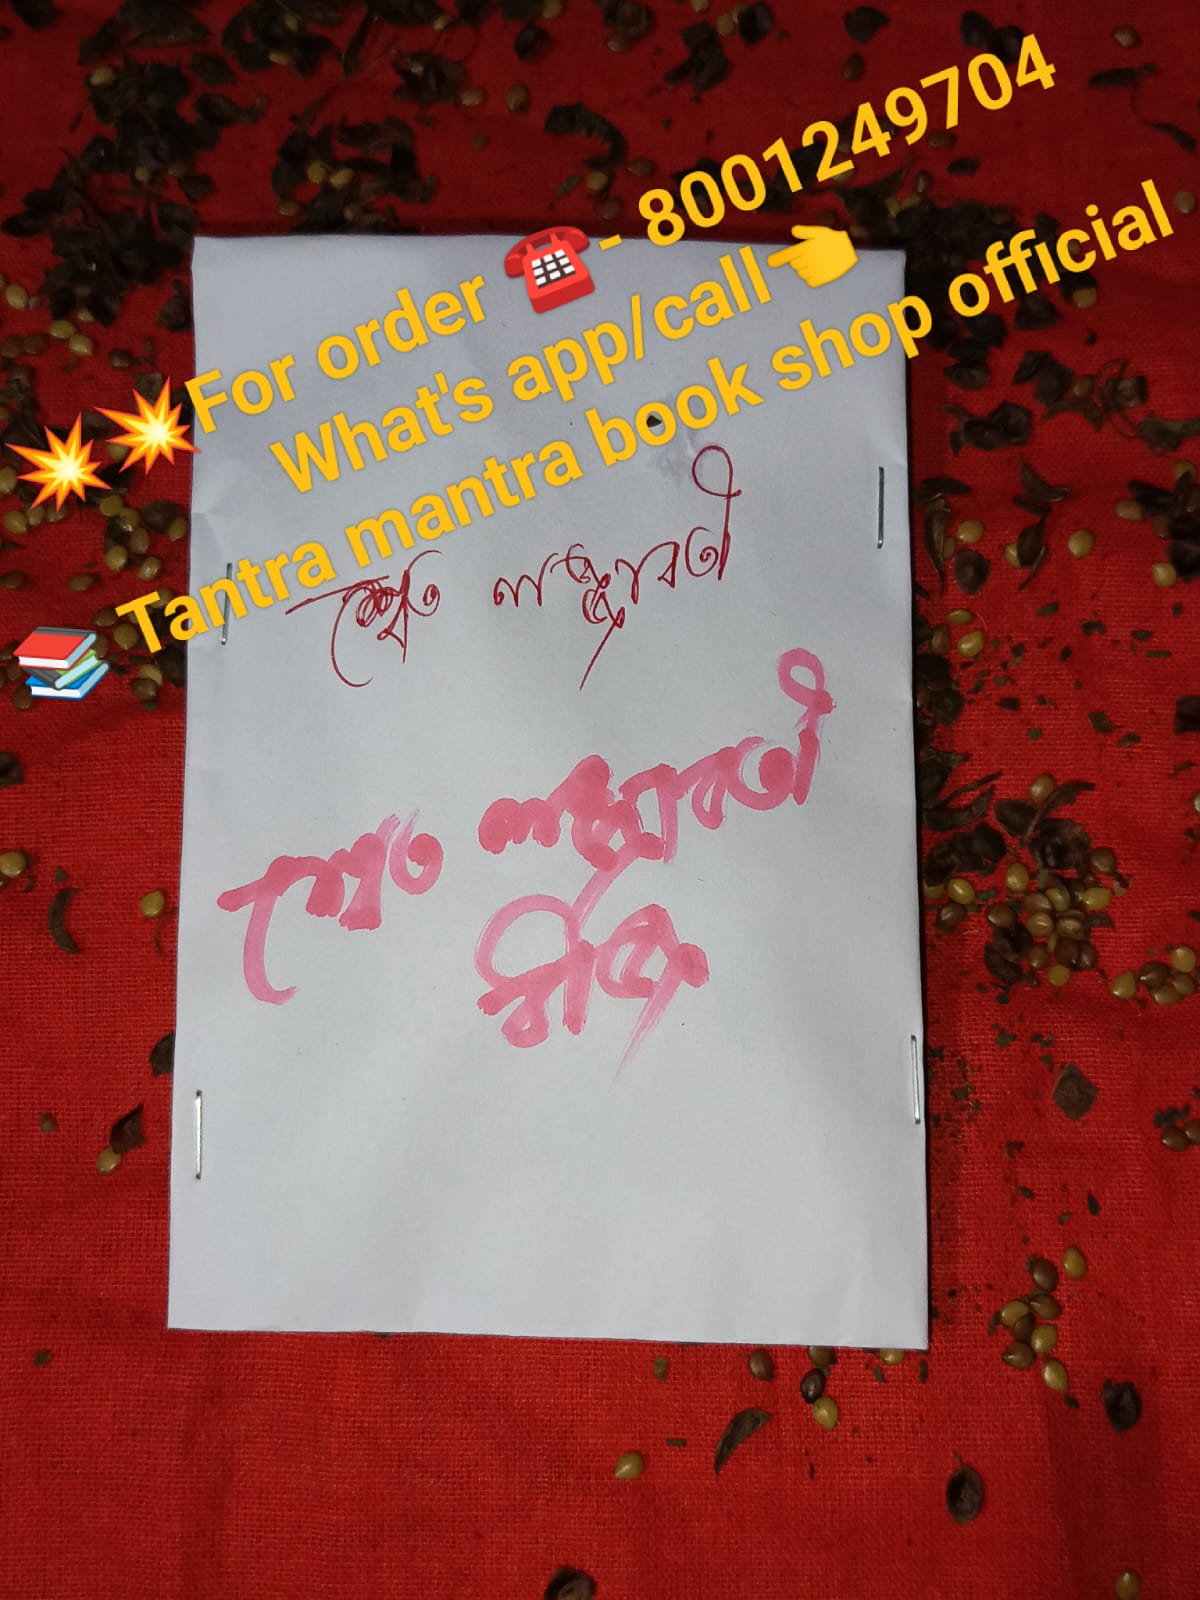 💥💥For order ☎️- 8001249704
What's app/call👈
📚 Tantra mantra book shop official
শ্বেত লজ্জাবতী
শ্বেত লজ্জাবতী
বীজ